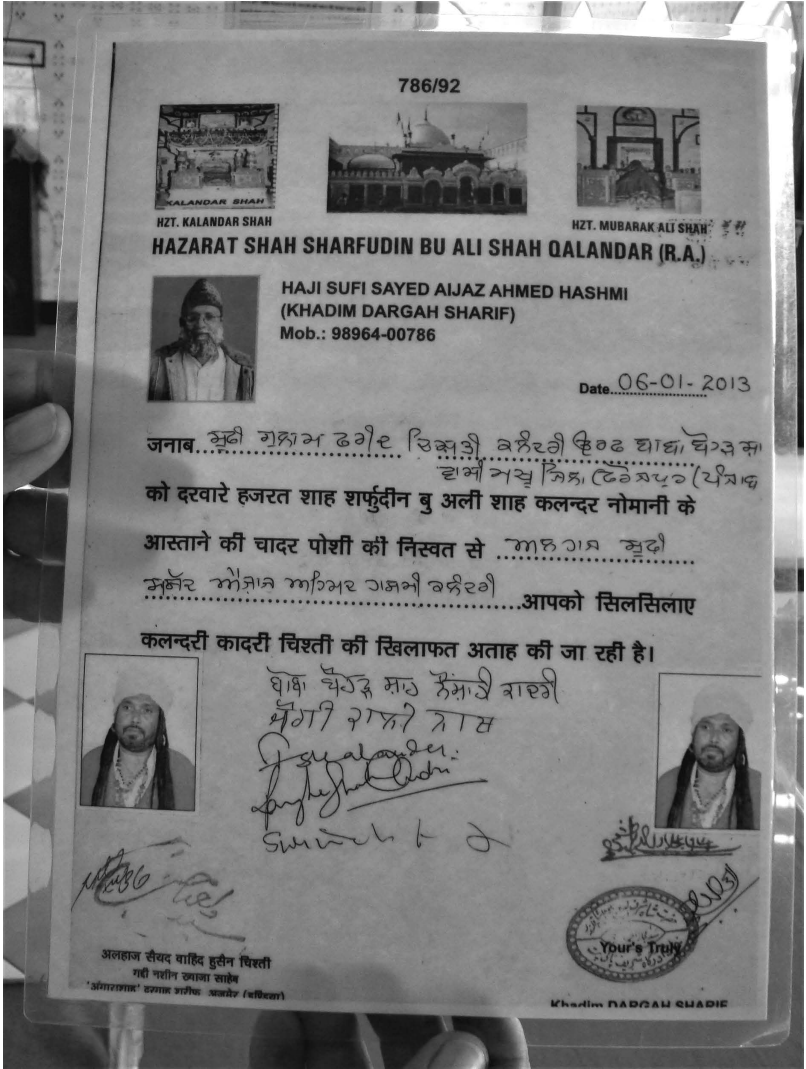 786/92
KALANDAR SHAH
HZT. KALANDAR SHAH
HZT. MUBARAK ALI SHAH
HAZARAT SHAH SHARFUDIN BU ALI SHAH QALANDAR (R.A.)
HAJI SUFI SAYED AIJAZ AHMED HASHMI
(KHADIM DARGAH SHARIF)
Mob.: 98964-00786
Date 06-01-2013
जनाब ਸੂਫੀ ਗੁਲਾਮ ਫਰੀਦ ਚਿਸ਼ਤੀ ਕਲੰਦਰੀ ਉਰਫ ਬਾਬਾ
ਵਾਸੀ ਮਖੂ ਜਿਲਾ ਫਿਰੋਜਪੁਰ (ਪੰਜਾਬ
को दरवारे हजरत शाह शर्फुदीन बु अली शाह कलन्दर नोमानी के
आस्ताने की चादर पोशी की निस्वत से ਅਲਹਾਜ ਸੂਫੀ
ਸਯੱਦ ਐਜਾਜ ਅਹਿਮਦ ਹਾਸ਼ਮੀ ਕਲੰਦਰੀ आपको सिलसिलाए
कलन्दरी कादरी चिश्ती की खिलाफत अताह की जा रही है।
ਸ਼ਾਹ ਕਾਦਰੀ
अलहाज सैयद वाहिद हुसैन चिश्ती
गद्दी नशीन ख्वाजा साहेब
Your's Truly
Khadim DARGAH SHARIF